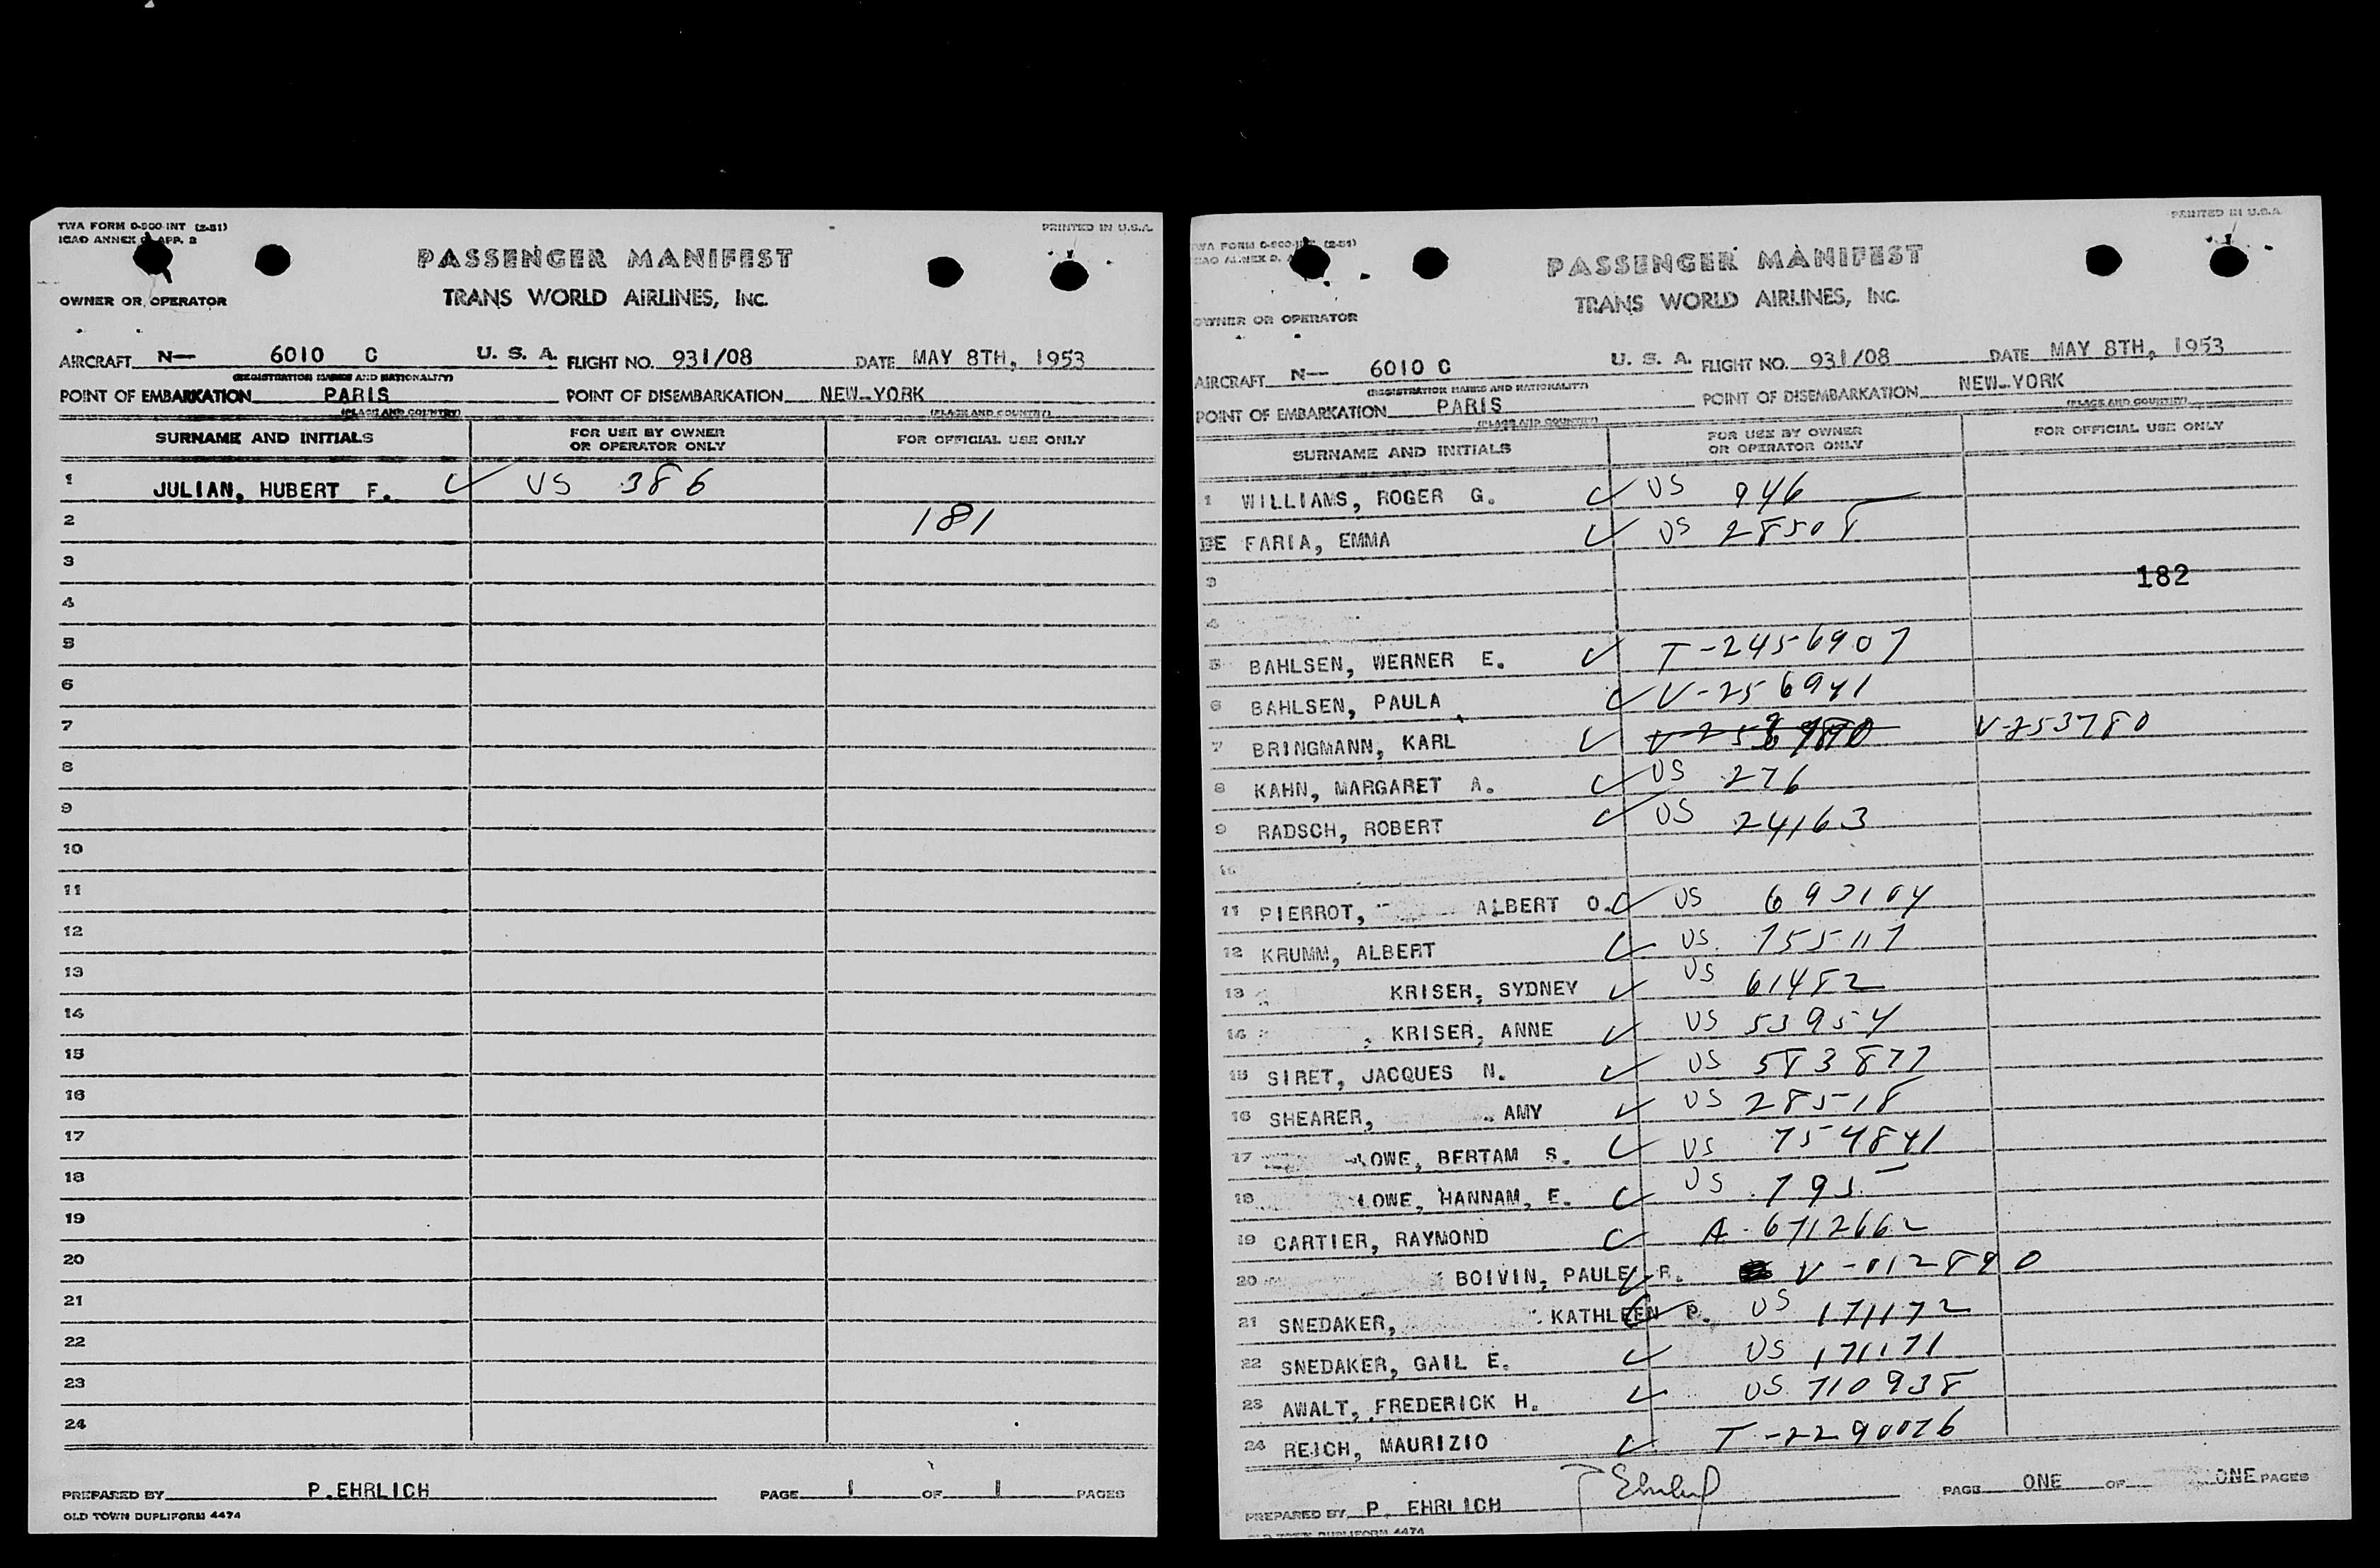 TWA FORM O-500-INT (2-51)
ICAO ANNEX 9, APP. 3
PRINTED IN U.S.A.
PASSENGER MANIFEST
OWNER OR OPERATOR
TRANS WORLD AIRLINES, INC.
AIRCRAFT N— 6010 C U. S. A. FLIGHT NO. 931/08 DATE MAY 8TH, 1953
(REGISTRATION MARKS AND NATIONALITY)
POINT OF EMBARKATION PARIS POINT OF DISEMBARKATION NEW-YORK
(PLACE AND COUNTRY) (PLACE AND COUNTRY)
SURNAME AND INITIALS FOR USE BY OWNER OR OPERATOR ONLY FOR OFFICIAL USE ONLY
1 JULIAN, HUBERT F. ✓ US 386
2 181
3
4
5
6
7
8
9
10
11
12
13
14
15
16
17
18
19
20
21
22
23
24
PREPARED BY P.EHRLICH PAGE 1 OF 1 PAGES
OLD TOWN DUPLIFORM 4474
TWA FORM O-500-INT (2-51)
PRINTED IN U.S.A.
PASSENGER MANIFEST
TRANS WORLD AIRLINES, INC.
OWNER OR OPERATOR
AIRCRAFT N— 6010 C U. S. A. FLIGHT NO. 931/08 DATE MAY 8TH, 1953
(REGISTRATION MARKS AND NATIONALITY)
POINT OF EMBARKATION PARIS POINT OF DISEMBARKATION NEW-YORK
(PLACE AND COUNTRY) (PLACE AND COUNTRY)
SURNAME AND INITIALS FOR USE BY OWNER OR OPERATOR ONLY FOR OFFICIAL USE ONLY
1 WILLIAMS, ROGER G. ✓ US 946
DE FARIA, EMMA ✓ US 28508
3 182
4
5 BAHLSEN, WERNER E. ✓ T-2456907
6 BAHLSEN, PAULA ✓ V-256941
7 BRINGMANN, KARL ✓ V-253780
8 KAHN, MARGARET A. ✓ US 276
9 RADSCH, ROBERT ✓ US 24163
10
11 PIERROT, ALBERT O. ✓ US 693104
12 KRUMM, ALBERT ✓ US 755117
13 KRISER, SYDNEY ✓ US 61482
14 KRISER, ANNE ✓ US 53954
15 SIRET, JACQUES N. ✓ US 583877
16 SHEARER, AMY ✓ US 28518
17 LOWE, BERTAM S. ✓ US 754841
18 LOWE, HANNAM, E. ✓ US 795
19 CARTIER, RAYMOND ✓ A-6712662
20 BOIVIN, PAULE R. ✓ V-012890
21 SNEDAKER, KATHLEEN P. ✓ US 171172
22 SNEDAKER, GAIL E. ✓ US 171171
23 AWALT, FREDERICK H. ✓ US 710938
24 REICH, MAURIZIO ✓ T-2290076
PREPARED BY P. EHRLICH PAGE ONE OF ONE PAGES
OLD TOWN DUPLIFORM 4474